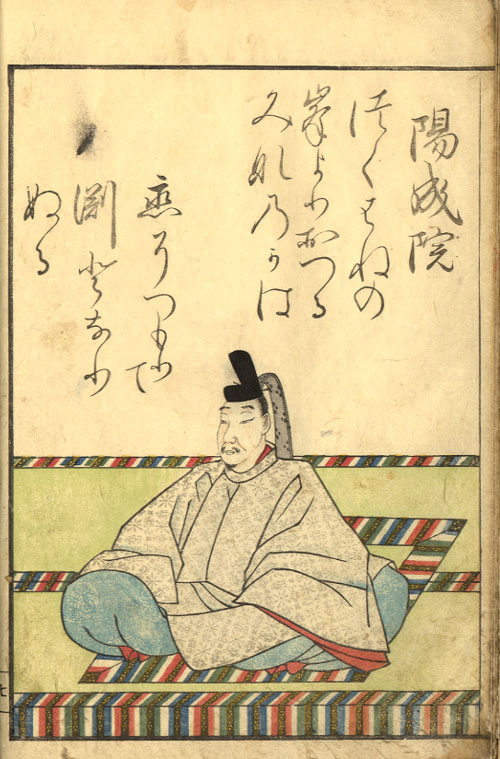 陽成院
つくはねの
峯よりおつる
みなのかは
恋そつもりて
淵となり
ぬる